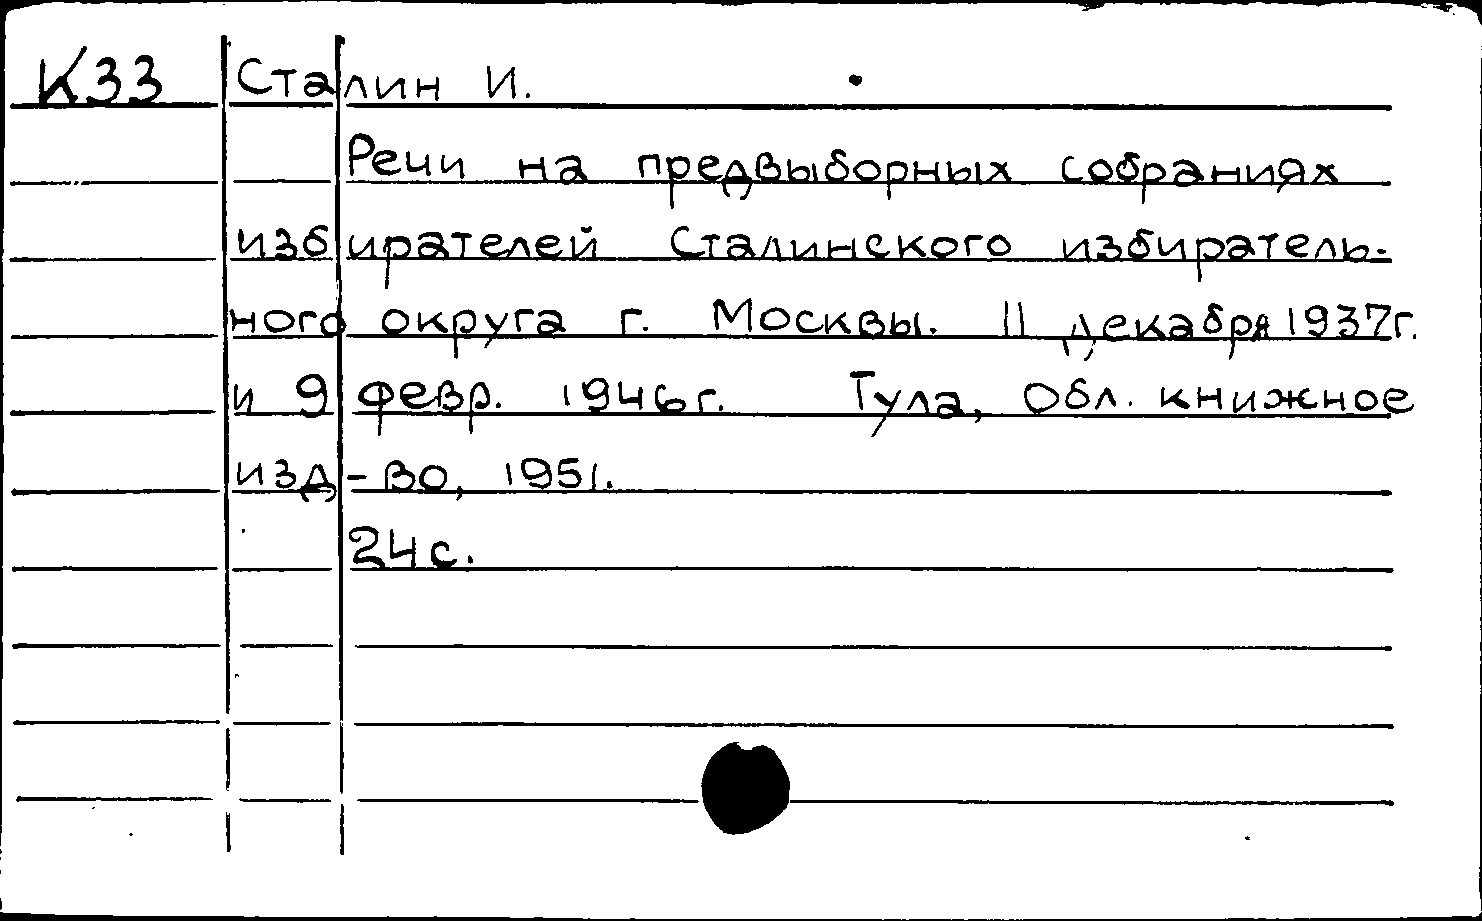 К33 Сталин И.
Речи на предвыборных собраниях
избирателей Сталинского избиратель-
ного округа г. Москвы. 11 декабря 1937г.
и 9 февр. 1946г. Тула, Обл. книжное
изд-во, 1951.
24с.